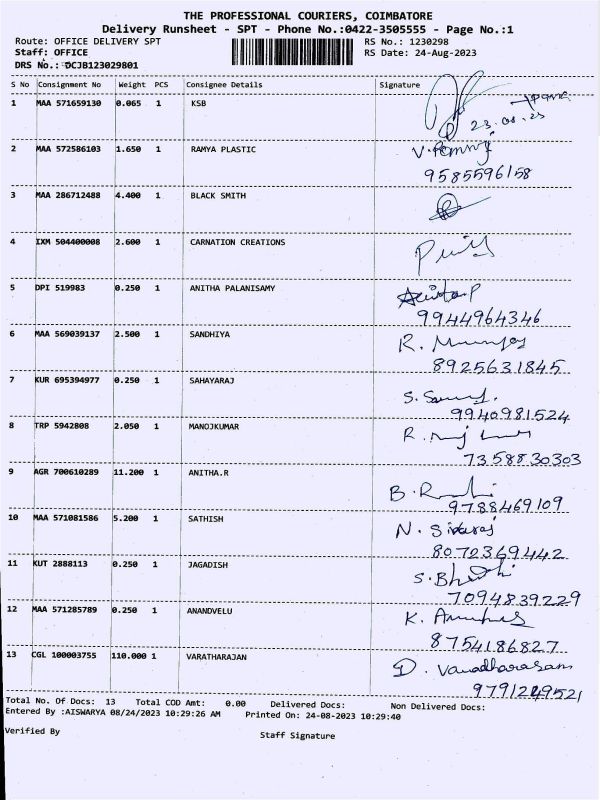 THE PROFESSIONAL COURIERS, COIMBATORE
Delivery Runsheet - SPT - Phone No.:0422-3505555 - Page No.:1
Route: OFFICE DELIVERY SPT RS No.: 1230298
Staff: OFFICE RS Date: 24-Aug-2023
DRS No.: DCJB123029801
S No Consignment No Weight PCS Consignee Details Signature
1 MAA 571659130 0.065 1 KSB
23.08.23
2 MAA 572586103 1.650 1 RAMYA PLASTIC
9585596158
3 MAA 286712488 4.400 1 BLACK SMITH
4 IXM 504400008 2.600 1 CARNATION CREATIONS
5 DPI 519983 0.250 1 ANITHA PALANISAMY
9944964346
6 MAA 569039137 2.500 1 SANDHIYA
8925631845
7 KUR 695394977 0.250 1 SAHAYARAJ
9940981524
8 TRP 5942808 2.050 1 MANOJKUMAR
7358830303
9 AGR 700610289 11.200 1 ANITHA.R
9788469109
10 MAA 571081586 5.200 1 SATHISH
8072369442
11 KUT 2888113 0.250 1 JAGADISH
7094839229
12 MAA 571285789 0.250 1 ANANDVELU
8754186827
13 CGL 100003755 110.000 1 VARATHARAJAN
9791249521
Total No. Of Docs: 13 Total COD Amt: 0.00 Delivered Docs: Non Delivered Docs:
Entered By :AISWARYA 08/24/2023 10:29:26 AM Printed On: 24-08-2023 10:29:40
Verified By Staff Signature